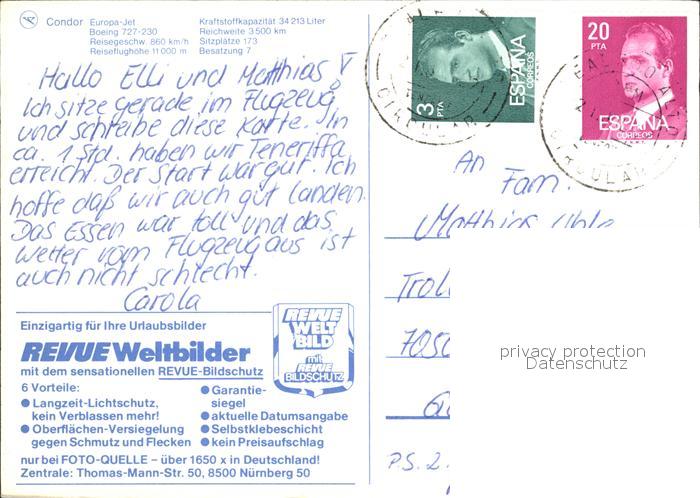 Condor Europa-Jet
Boeing 727-230
Reisegeschw. 860 km/h
Reiseflughöhe 11 000 m
Kraftstoffkapazität 34 213 Liter
Reichweite 3 500 km
Sitzplätze 173
Besatzung 7
3 PTA
ESPAÑA
CORREOS
20 PTA
ESPAÑA
CORREOS
CIRCULAR
Hallo Elli und Matthias!
Ich sitze gerade im Flugzeug
und schreibe diese Karte. In
ca. 1 Std. haben wir Teneriffa
erreicht. Der Start war gut. Ich
hoffe daß wir auch gut landen.
Das Essen war toll und das
Wetter vom Flugzeug aus ist
auch nicht schlecht.
Carola
An
Fam.
Matthias
P.S. 2.
Einzigartig für Ihre Urlaubsbilder
REVUE Weltbilder
mit dem sensationellen REVUE-Bildschutz
REVUE
WELT
BILD
mit
REVUE
BILDSCHUTZ
6 Vorteile:
● Langzeit-Lichtschutz,
kein Verblassen mehr!
● Oberflächen-Versiegelung
gegen Schmutz und Flecken
● Garantie-
siegel
● aktuelle Datumsangabe
● Selbstklebeschicht
● kein Preisaufschlag
nur bei FOTO-QUELLE – über 1650 x in Deutschland!
Zentrale: Thomas-Mann-Str. 50, 8500 Nürnberg 50
privacy protection
Datenschutz